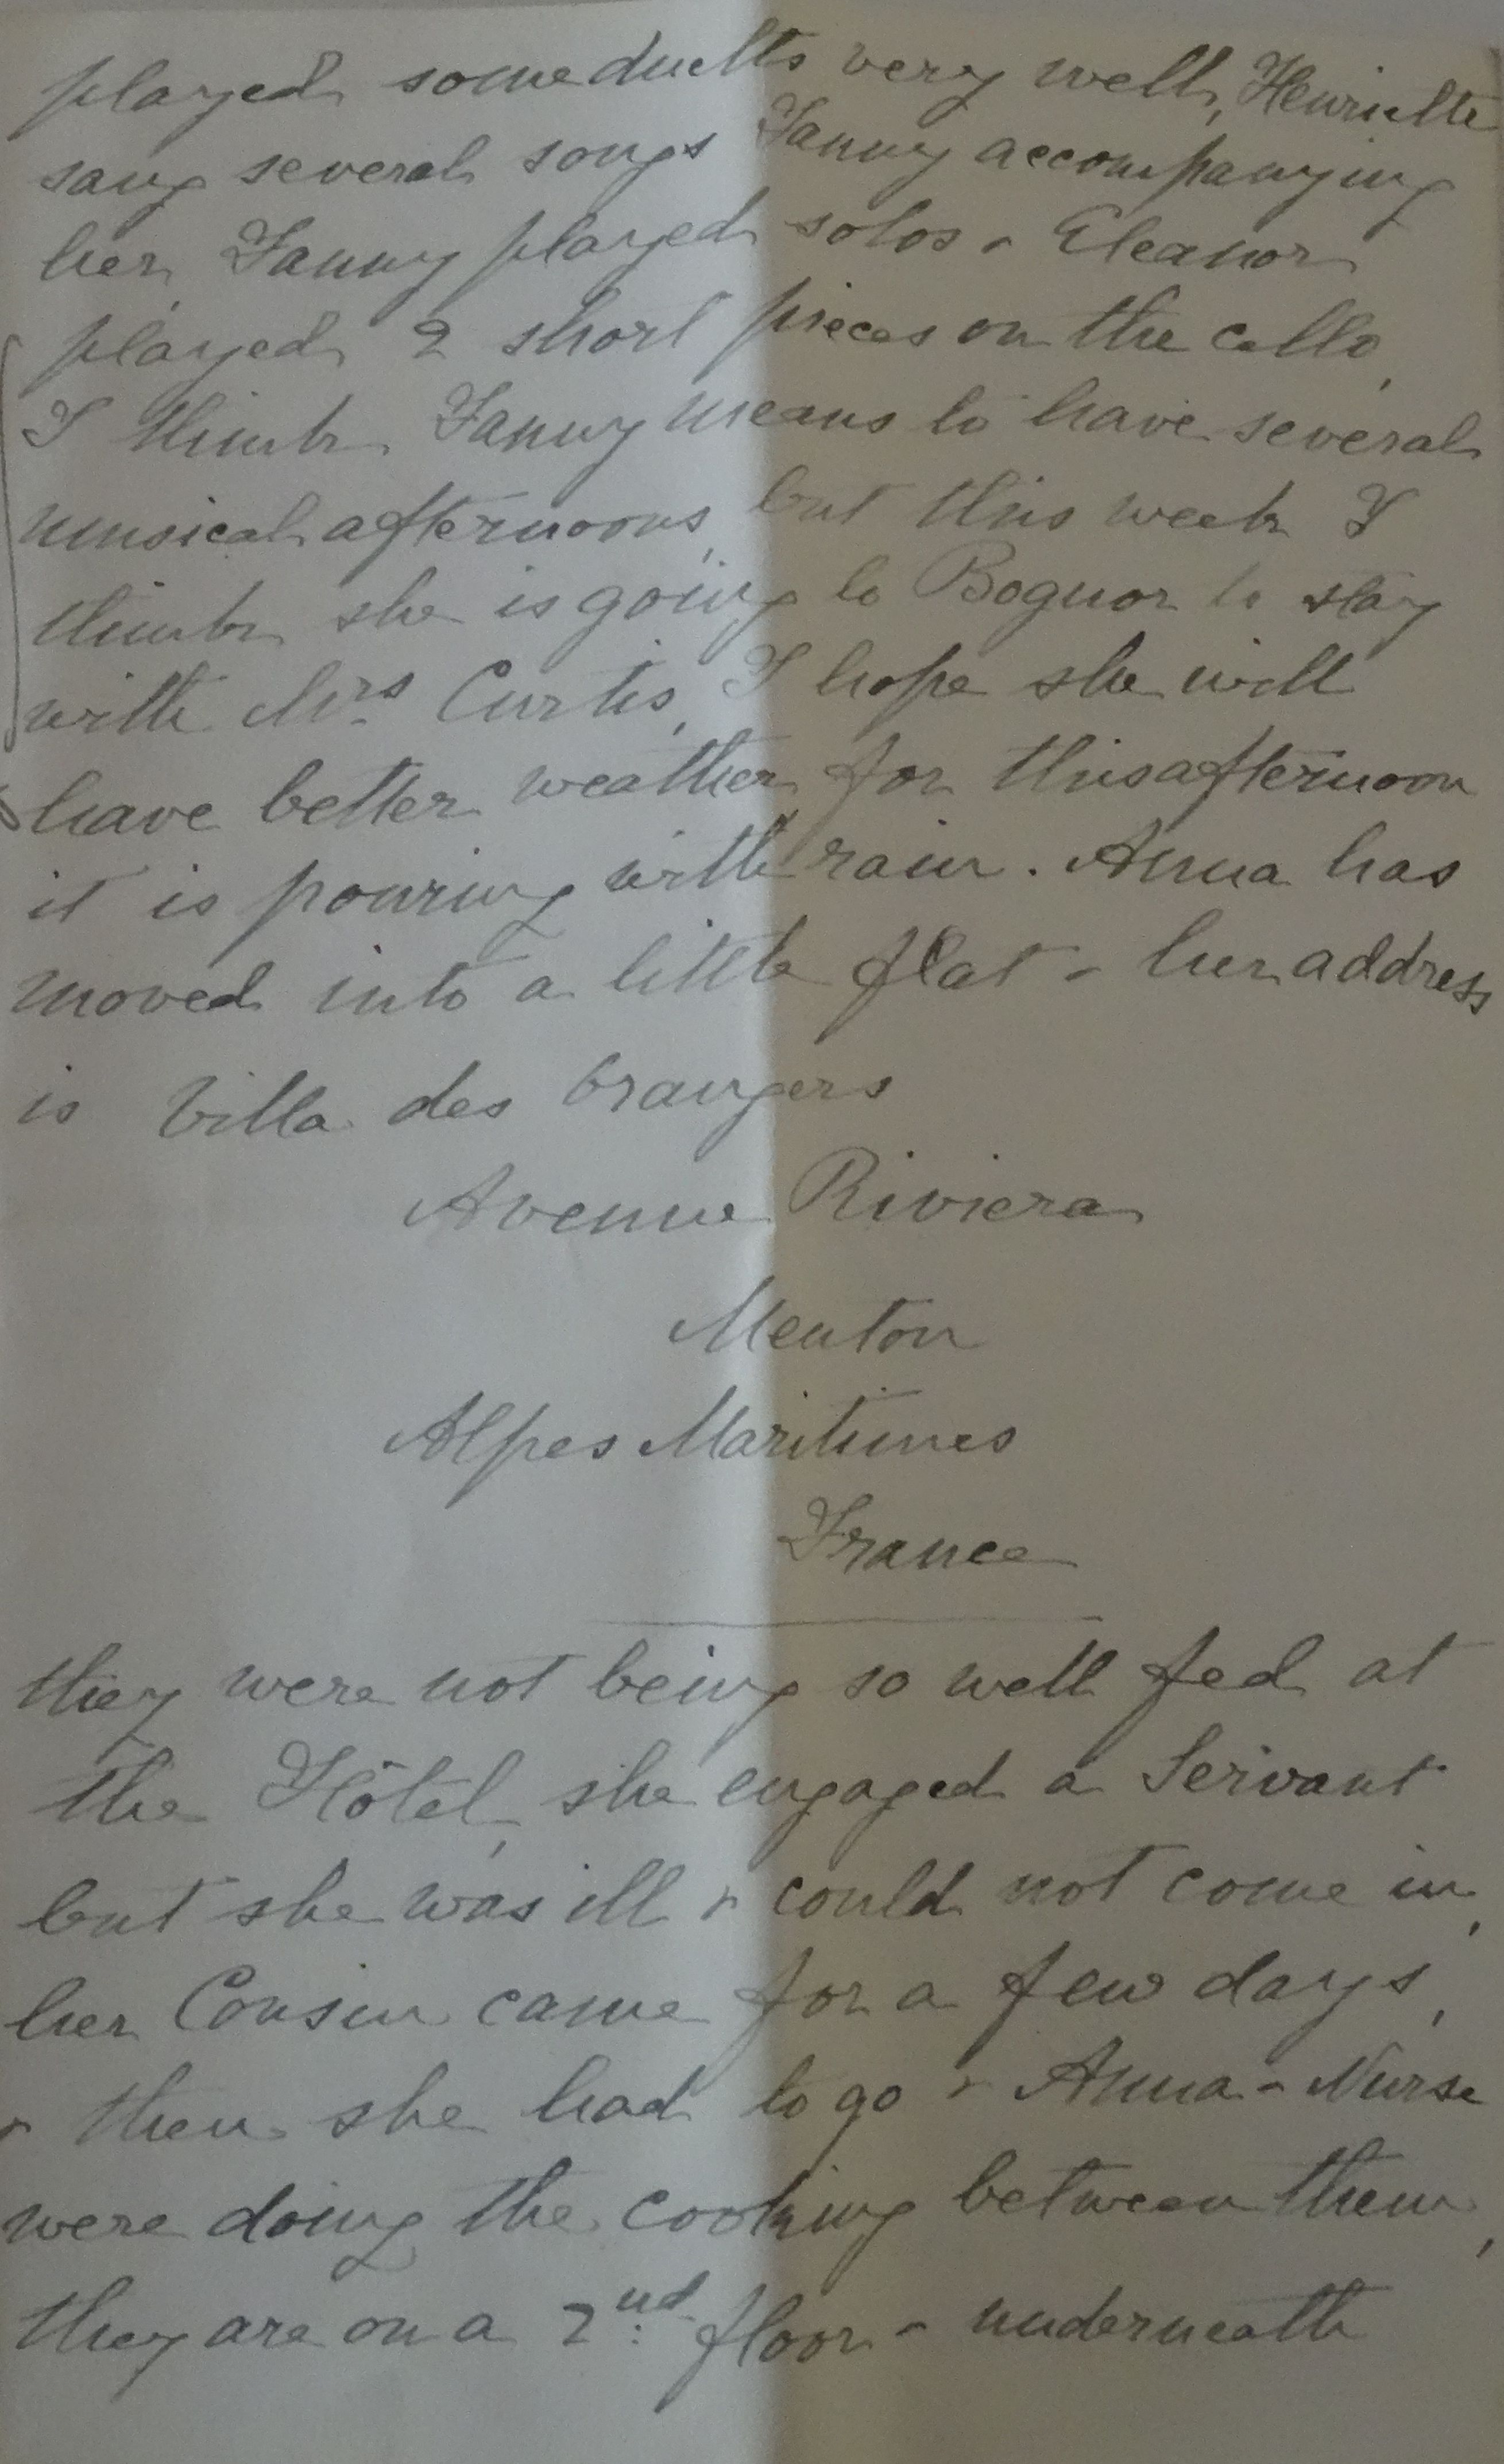 played some duetts very well, Henriette
sang several songs Fanny accompanying
her, Fanny played solos & Eleanor
played 2 short pieces on the cello,
I think Fanny means to have several
musical afternoons, but this week I
think she is going to Bognor to stay
with Mrs Curtis, I hope she will
have better weather, for this afternoon
it is pouring with rain. Anna has
moved into a little flat - her address
is Villa des Orangers
Avenue Riviera
Menton
Alpes Maritimes
France
they were not being so well fed at
the Hôtel, she engaged a Servant
but she was ill & could not come in,
her Cousin came for a few days,
& then she had to go & Anna & Nurse
were doing the cooking between them,
they are on a 2nd floor - underneath